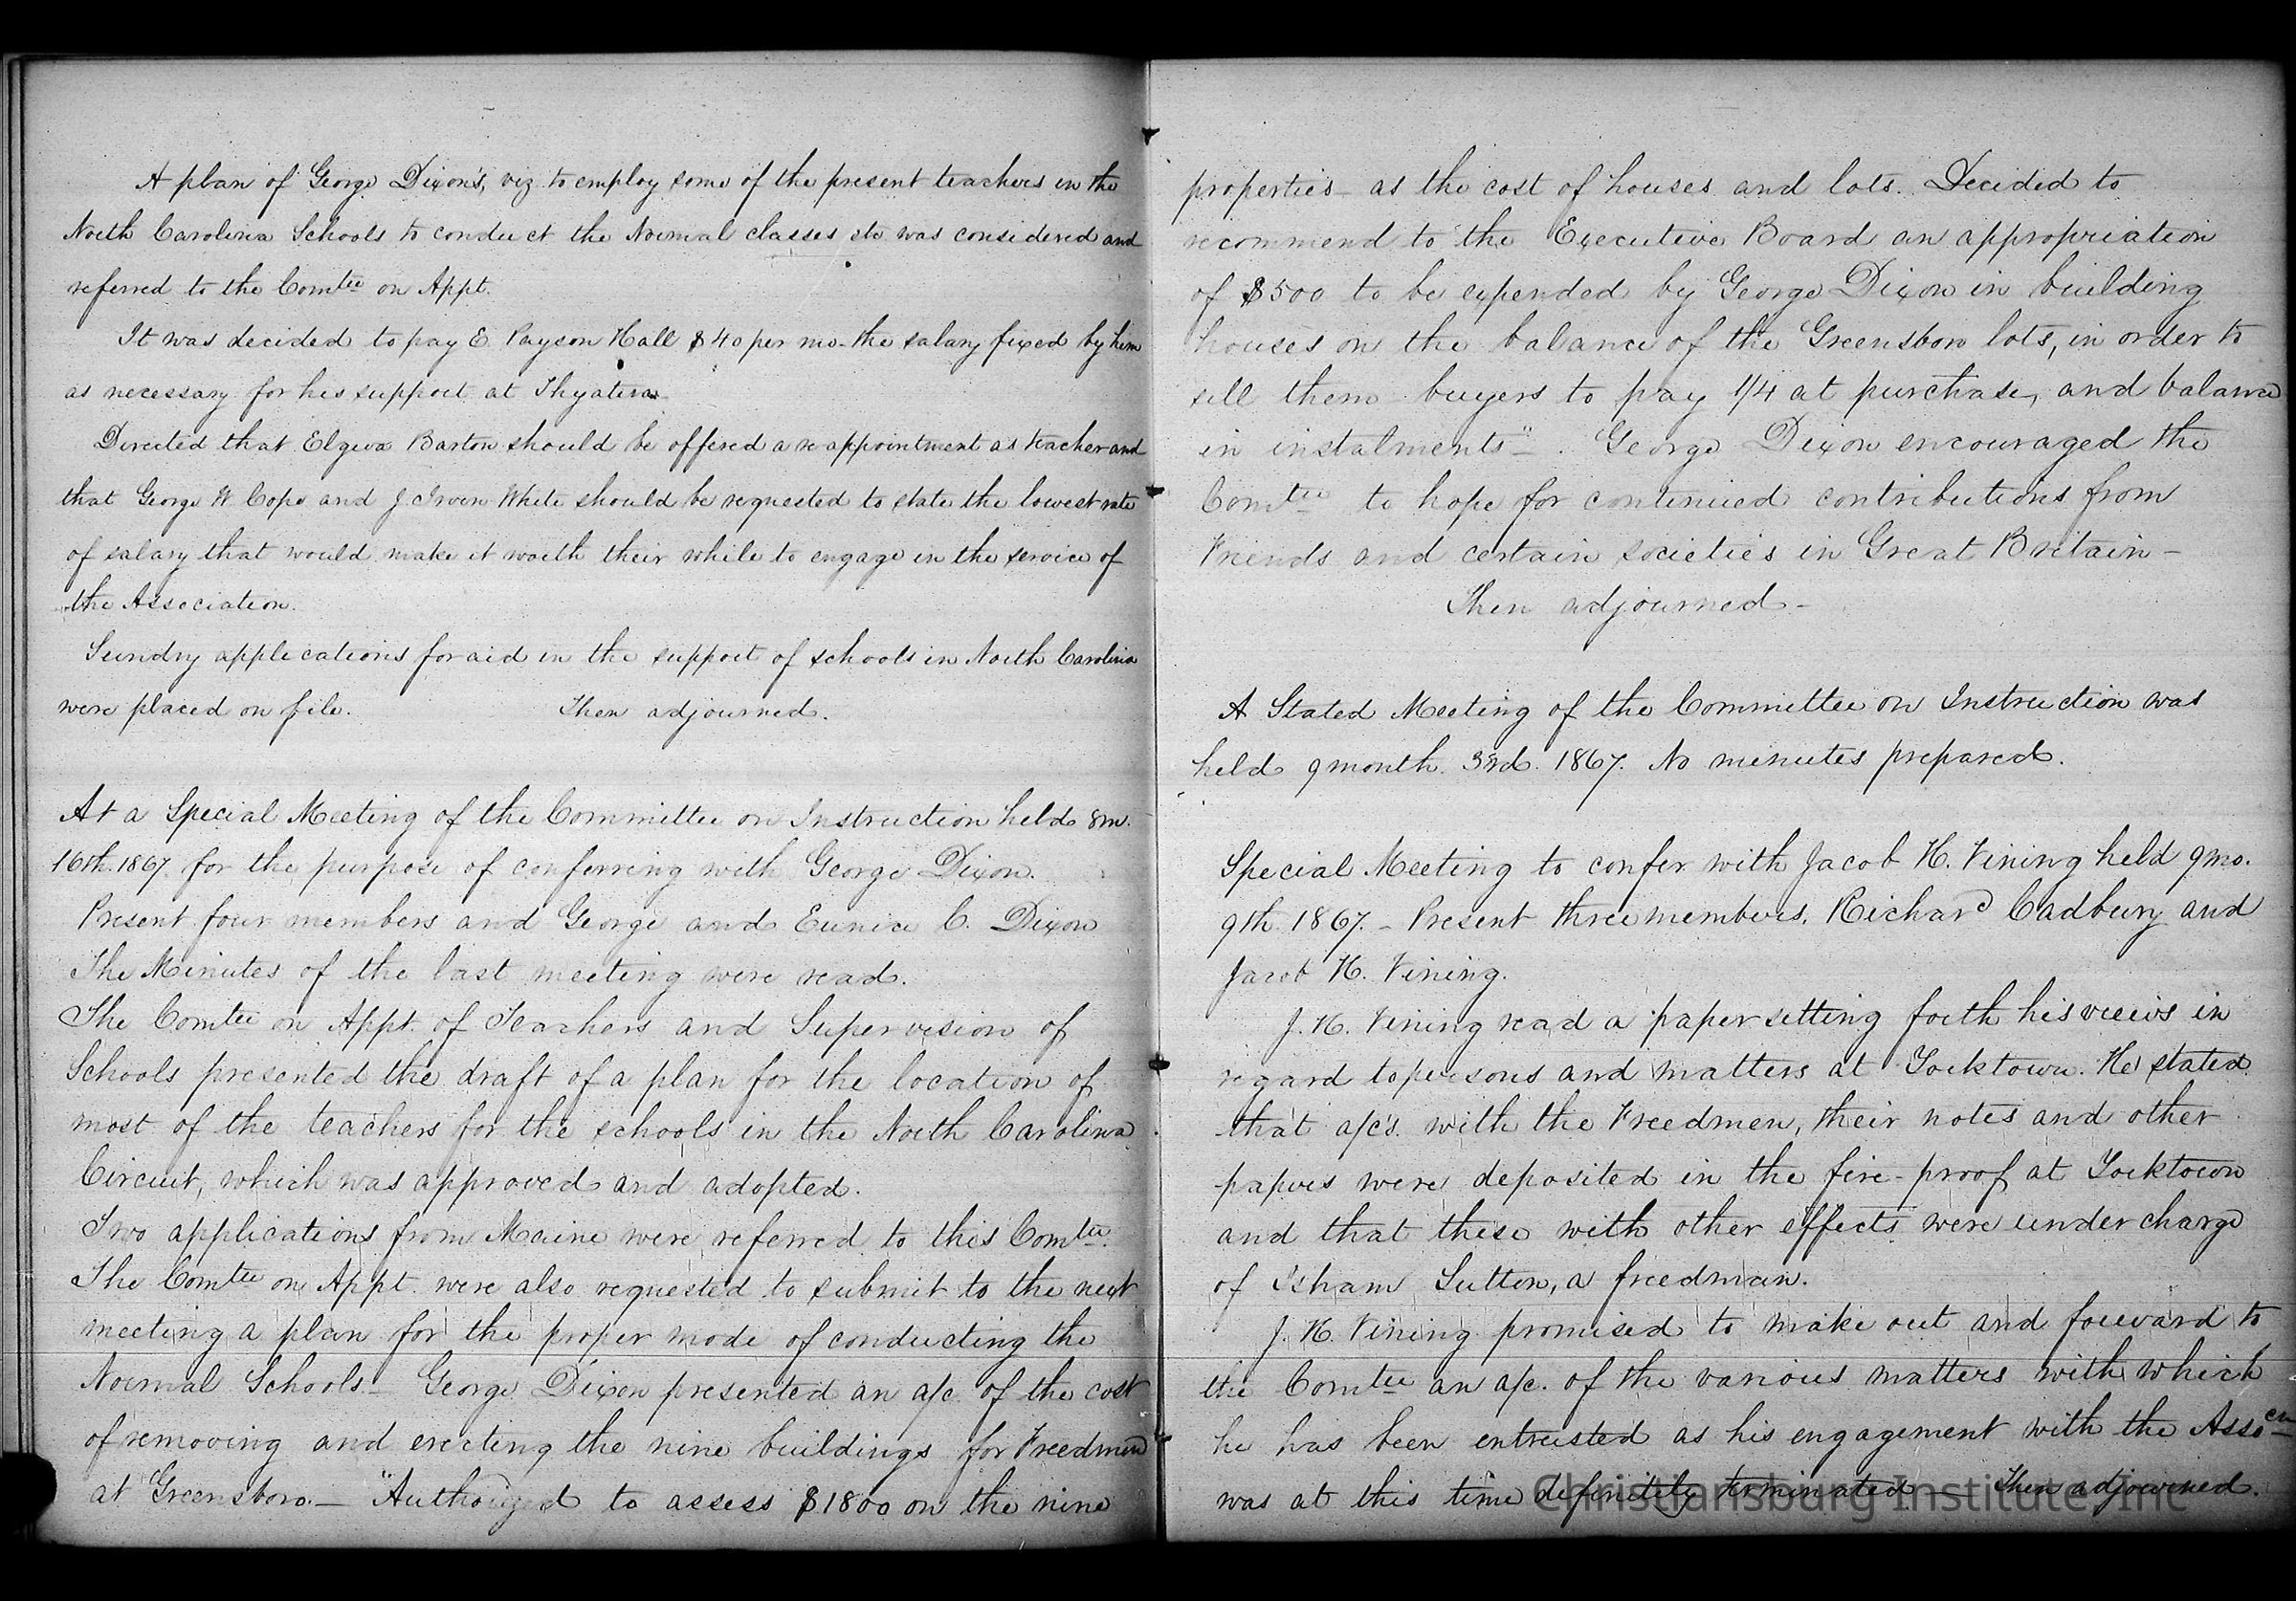 A plan of George Dixon's, viz. to employ some of the present teachers in the
North Carolina Schools to conduct the Normal classes etc was considered and
referred to the Comtee on Appt.
It was decided to pay E. Payson Hall $40 per mo. the salary fixed by him
as necessary for his support at Thyatira
Directed that Elgiva Barton should be offered a re appointment as teacher and
that George W. Cope and J. Irwin White should be requested to state the lowest rate
of salary that would make it worth their while to engage in the service of
the Association.
Sundry applications for aid in the support of schools in North Carolina
were placed on file. Then adjourned.
At a Special Meeting of the Committee on Instruction held 8m.
16th. 1867 for the purpose of conferring with George Dixon.
Present four members and George and Eunice C. Dixon
The Minutes of the last meeting were read.
The Comtee on Appt. of Teachers and Supervision of
Schools presented the draft of a plan for the location of
most of the teachers for the schools in the North Carolina
Circuit, which was approved and adopted.
Two applications from Maine were referred to this Comtee.
The Comtee on Appt. were also requested to submit to the next
meeting a plan for the proper mode of conducting the
Normal Schools - George Dixon presented an a/c of the cost
of removing and erecting the nine buildings for Freedmen
at Greensboro. — "Authorized to assess $1800 on the nine
properties as the cost of houses and lots. Decided to
recommend to the Executive Board an appropriation
of $500 to be expended by George Dixon in building
houses on the balance of the Greensboro lots, in order to
sell them buyers to pay 1/4 at purchase, and balance
in instalments" - . George Dixon encouraged the
Comtee to hope for continued contributions from
Friends and certain societies in Great Britain -
Then adjourned -
A Stated Meeting of the Committee on Instruction was
held 9 month. 3rd. 1867. No minutes prepared.
Special Meeting to confer with Jacob H. Vining held 9mo.
9th. 1867. - Present three members, Richard Cadbury and
Jacob H. Vining.
J. H. Vining read a paper setting forth his views in
regard to persons and matters at Yorktown. He stated
that a/c's. with the Freedmen, their notes and other
papers were deposited in the fire-proof at Yorktown
and that these with other effects were under charge
of Isham Sutton, a freedman.
J. H. Vining promised to make out and forward to
the Comtee an a/c. of the various matters with which
he has been entrusted as his engagement with the Assocn
was at this time definitely terminated — Then adjourned.
Christiansburg Institute, Inc